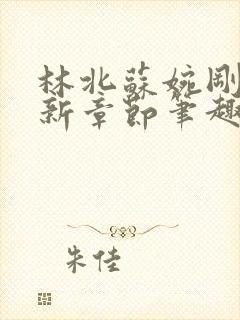 林北蘇婉剛
新章節筆趣
朱佳